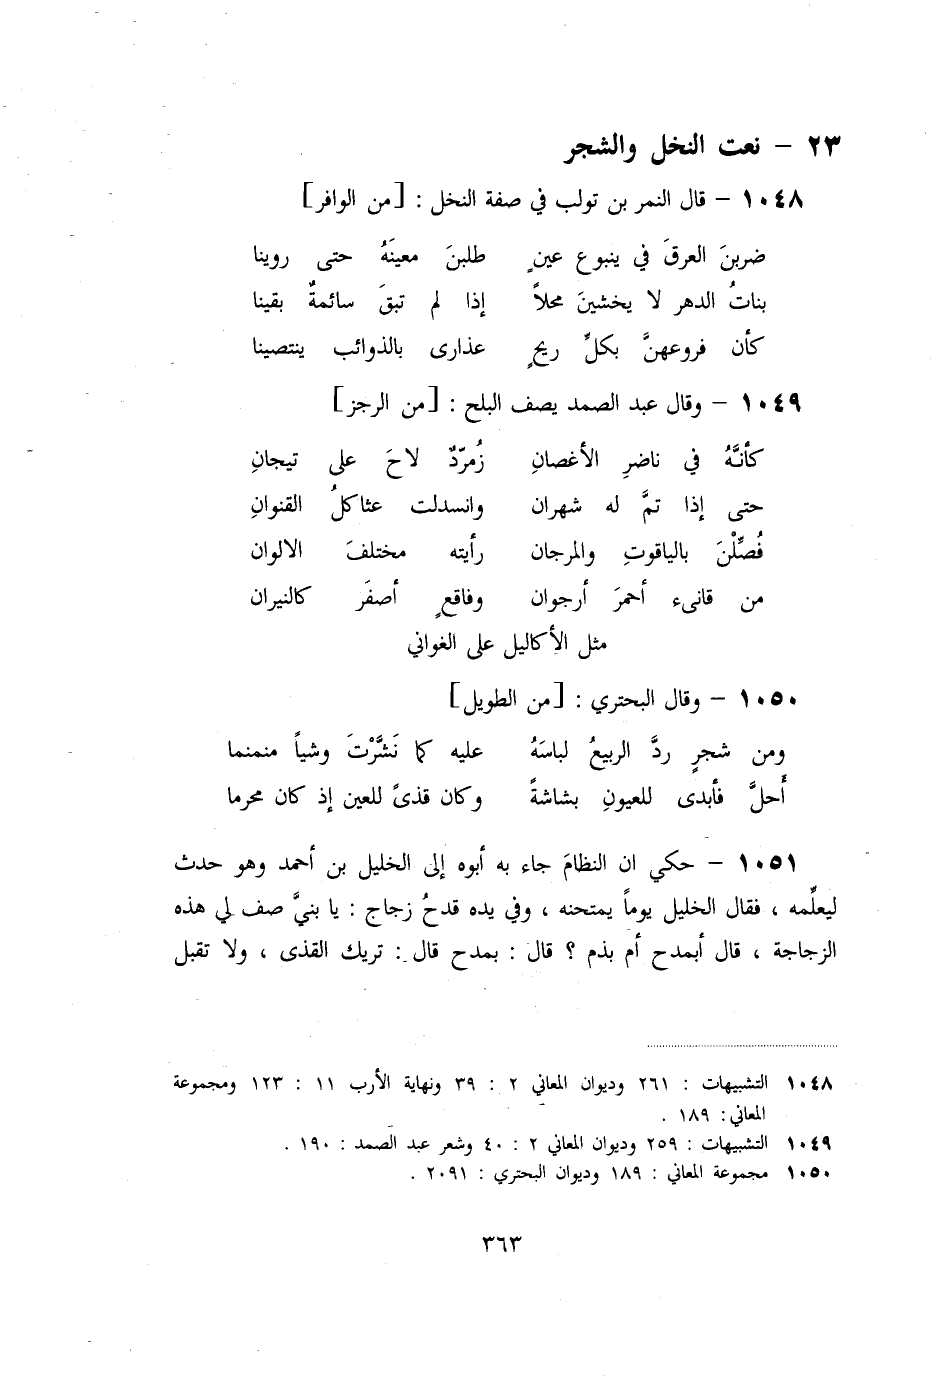 ٢٣ – نعت النخل والشجر
١٠٤٨ – قال النمر بن تولب في صفة النخل : [من الوافر]
ضربنَ العرقَ في ينبوع عينٍ طلبنَ معينَهُ حتى روينا
بناتُ الدهر لا يخشينَ محلاً إذا لم تبقَ سائمةٌ بقينا
كأن فروعهنَّ بكلِّ ريحٍ عذارى بالذوائب ينتصينا
١٠٤٩ – وقال عبد الصمد يصف البلح : [من الرجز]
كأنَّهُ في ناضرِ الأغصانِ زُمرّدٌ لاحَ على تيجانِ
حتى إذا تمَّ له شهران وانسدلت عثاكلُ القنوانِ
فُصِّلْنَ بالياقوتِ والمرجان رأيته مختلفَ الالوان
من قانىء أحمرَ أرجوان وفاقعٍ أصفَر كالنيران
مثل الأكاليل على الغواني
١٠٥٠ – وقال البحتري : [من الطويل]
ومن شجرٍ ردَّ الربيعُ لباسَهُ عليه كما نَشَّرْتَ وشياً منمنما
أَحلَّ فأبدى للعيونِ بشاشةً وكان قذىً للعين إذ كان محرما
١٠٥١ – حكي ان النظامَ جاء به أبوه إلى الخليل بن أحمد وهو حدث
ليعلِّمه ، فقال الخليل يوماً يمتحنه ، وفي يده قدحُ زجاج : يا بنيَّ صف لي هذه
الزجاجة ، قال أبمدح أم بذم ؟ قال : بمدح قال : تريك القذى ، ولا تقبل
١٠٤٨ التشبيهات : ٢٦١ وديوان المعاني ٢ : ٣٩ ونهاية الأرب ١١ : ١٢٣ ومجموعة
المعاني : ١٨٩ .
١٠٤٩ التشبيهات : ٢٥٩ وديوان المعاني ٢ : ٤٠ وشعر عبد الصمد : ١٩٠ .
١٠٥٠ مجموعة المعاني : ١٨٩ وديوان البحتري : ٢٠٩١ .
٣٦٣